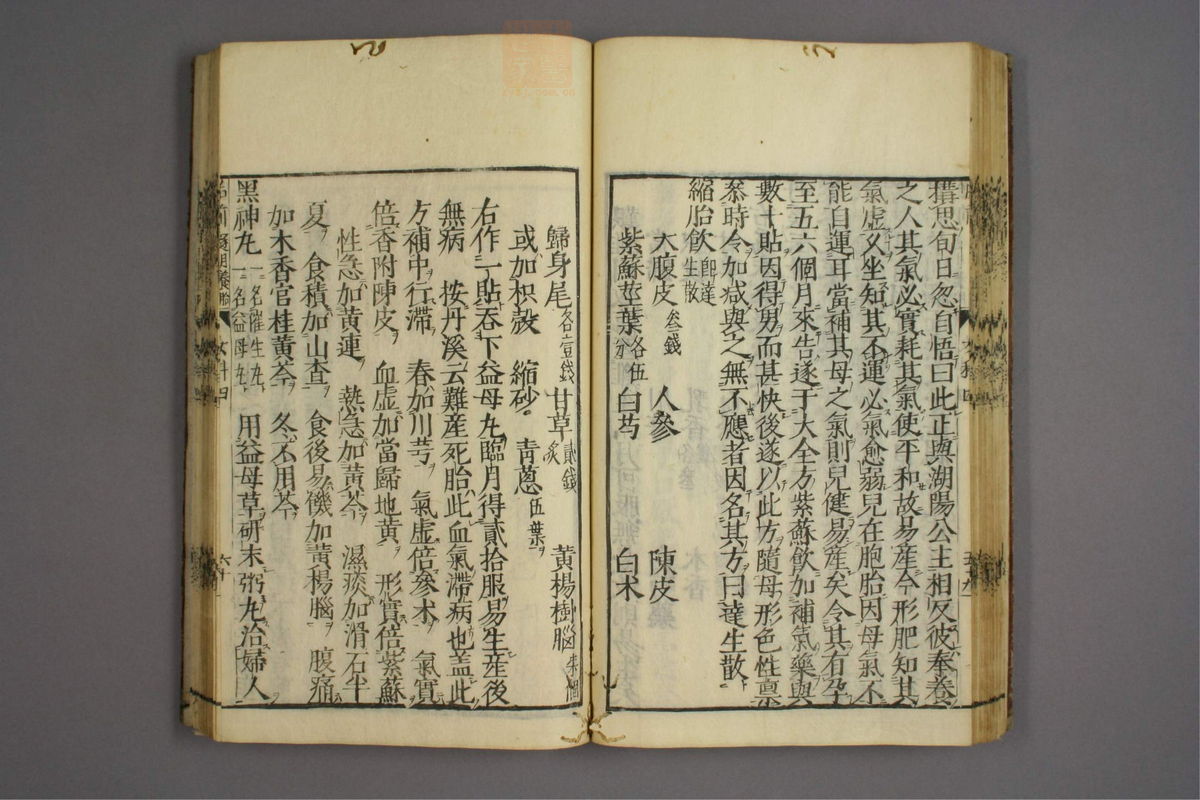 猶思旬日忽自悟曰此正與湖陽公主相反彼奉養
之人其氣必實耗其氣使平和故易產今形肥知其
氣虛又坐知其不運必氣愈弱兒在胞胎因母氣不
能自運耳當補其母之氣則兒健易產矣令其有孕
至五六個月來告遂于大全方紫蘇飲加補氣藥與
數十貼因得男而甚快後遂以此方隨母形色性稟
叅時令加减與之無不應者因名其方曰達生散
縮胎飲 即達生散
大腹皮 叁錢 人參 陳皮
紫蘇莖葉 各伍分 白芍 白术
歸身尾 各壹錢 甘草 炙貳錢 黃楊樹腦 柒個
或加枳殼 縮砂 青蔥 伍葉
右作一貼吞下益母丸臨月得貳拾服易生産後
無病 按丹溪云難産死胎此血氣滯病也盖此
方補中行滯 春加川芎 氣虛倍參术 氣實
倍香附陳皮 血虛加當歸地黃 形實倍紫蘇
性急加黃連 熱急加黃芩 濕痰加滑石半
夏 食積加山查 食後易饑加黃楊腦 腹痛
加木香官桂黃芩 冬不用芩
黑神丸 一名催生丸 一名益母丸 用益母草研末粥丸治婦人